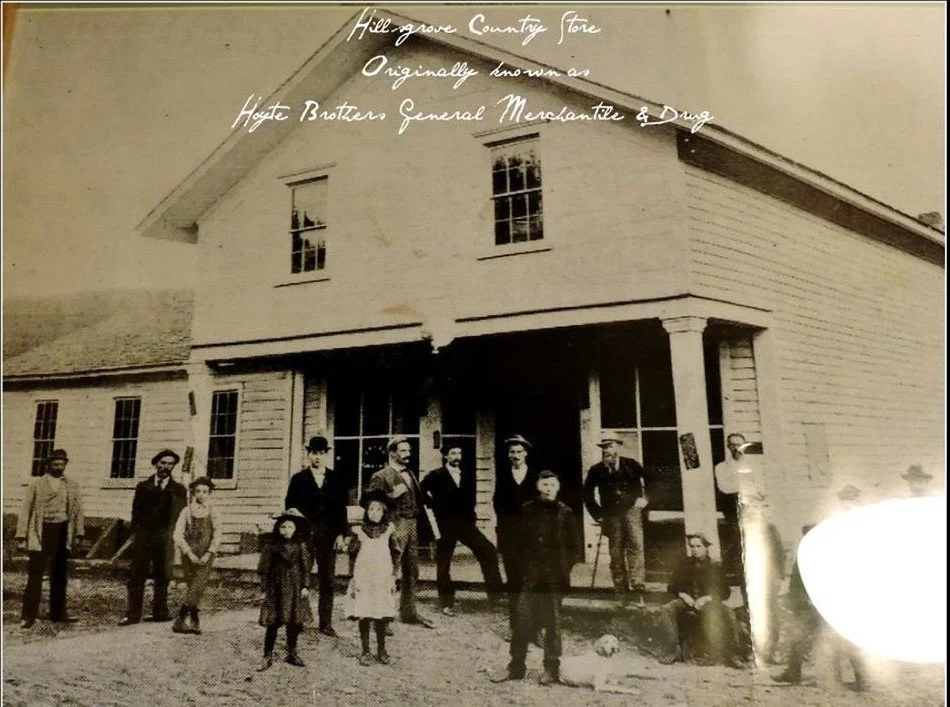 Hillsgrove Country Store
Originally known as
Hoyte Brothers General Merchantile & Drug